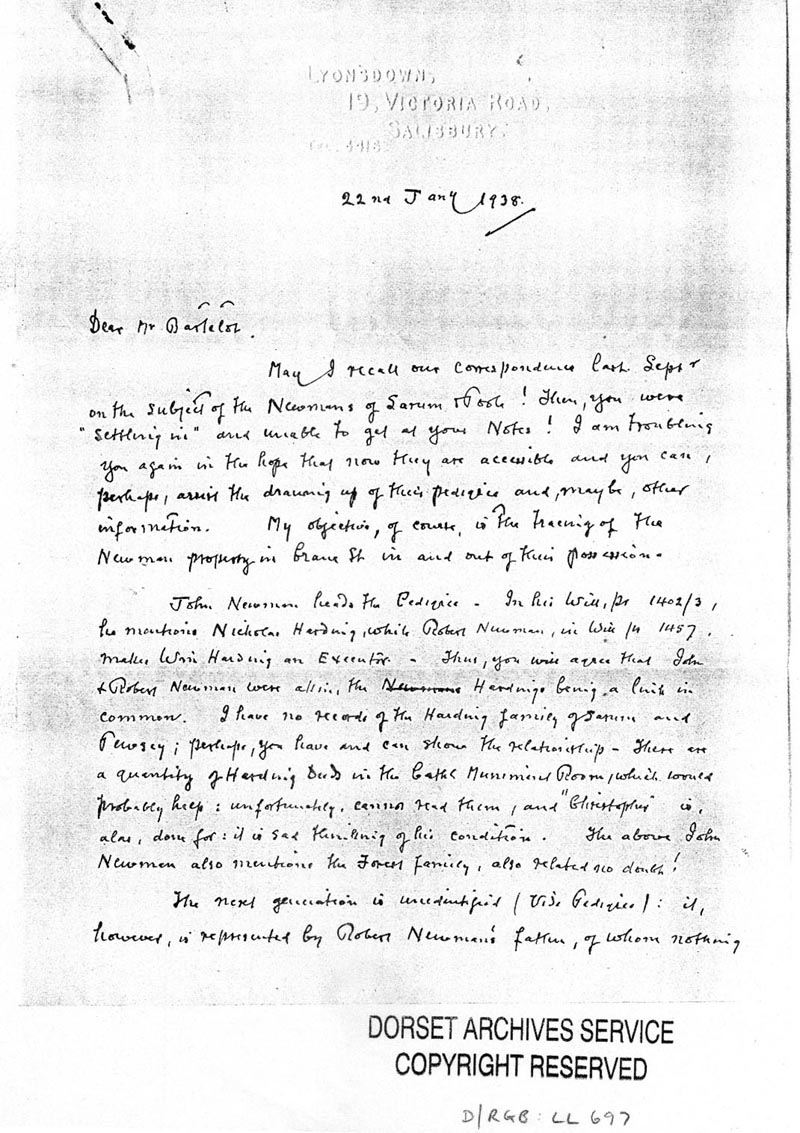 LYONSDOWN,
19, VICTORIA ROAD,
SALISBURY.
22nd Jany 1938.
Dear Mr Bartelot.
May I recall our correspondence last Septr
on the subject of the Newmans of Sarum & Poole! Then, you were
"settling in" and unable to get at your Notes! I am troubling
you again in the hope that now they are accessible and you can,
perhaps, assist the drawing up of their pedigree and, maybe, other
information. My objective, of course, is the tracing of the
Newman property in Crane St in and out of their possession.
John Newman heads the Pedigree - In his Will, pr 1402/3,
he mentions Nicholas Harding, while Robert Newman, in Will pr 1457.
makes Wm Harding an Executor. - Thus, you will agree that John
& Robert Newman were akin, the Newmans Hardings being a link in
common. I have no records of the Harding family of Sarum and
Pewsey; perhaps, you have and can show the relationship - There are
a quantity of Harding Deeds in the Cathl Muniment Room, which would
probably help: unfortunately, cannot read them, and "Christopher" is,
alas, done for: it is sad thinking of his condition. The above John
Newman also mentions the Forest family, also related no doubt!
The next generation is unidentified (Vide Pedigree): it,
however, is represented by Robert Newman's father, of whom nothing
DORSET ARCHIVES SERVICE
COPYRIGHT RESERVED
D/RGB: LL 697